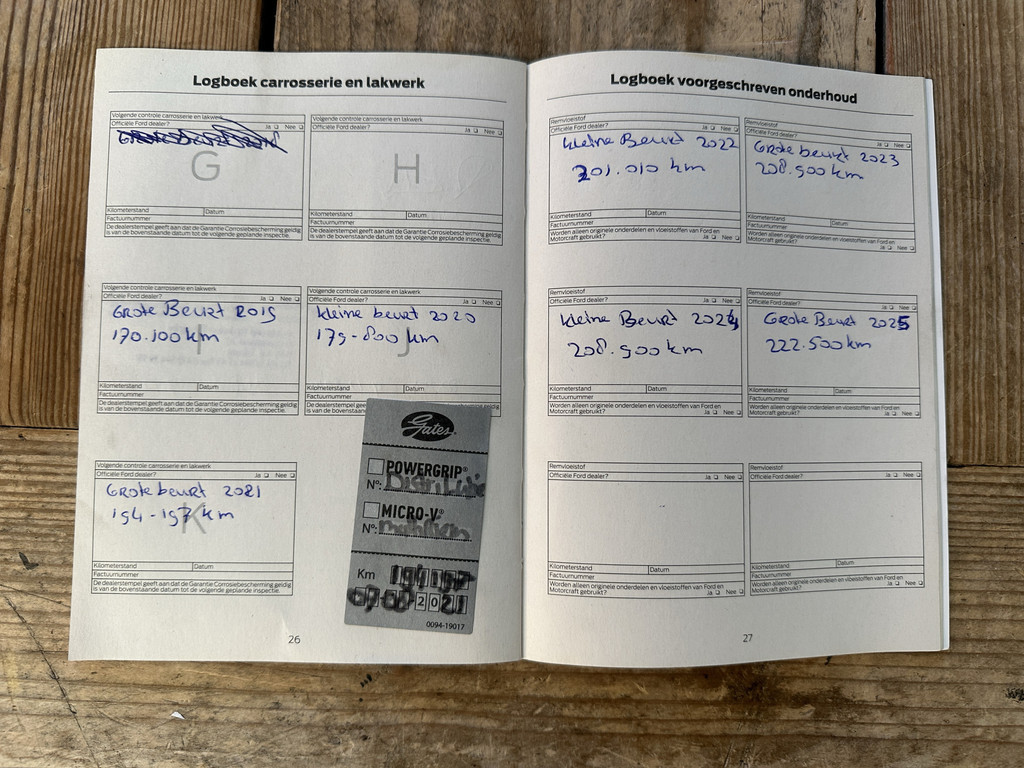 Logboek carrosserie en lakwerk
Volgende controle carrosserie en lakwerk
Officiële Ford dealer? Ja ❏ Nee ❏
G
Kilometerstand Datum
Factuurnummer
De dealerstempel geeft aan dat de Garantie Corrosiebescherming geldig
is van de bovenstaande datum tot de volgende geplande inspectie.
Volgende controle carrosserie en lakwerk
Officiële Ford dealer? Ja ❏ Nee ❏
H
Kilometerstand Datum
Factuurnummer
De dealerstempel geeft aan dat de Garantie Corrosiebescherming geldig
is van de bovenstaande datum tot de volgende geplande inspectie.
Volgende controle carrosserie en lakwerk
Officiële Ford dealer? Ja ❏ Nee ❏
Grote Beurt 2019
170.100 km
I
Kilometerstand Datum
Factuurnummer
De dealerstempel geeft aan dat de Garantie Corrosiebescherming geldig
is van de bovenstaande datum tot de volgende geplande inspectie.
Volgende controle carrosserie en lakwerk
Officiële Ford dealer? Ja ❏ Nee ❏
kleine beurt 2020
179-800 km
J
Kilometerstand Datum
Factuurnummer
De dealerstempel geeft aan dat de Garantie Corrosiebescherming geldig
is van de bovenstaande datum
Volgende controle carrosserie en lakwerk
Officiële Ford dealer? Ja ❏ Nee ❏
Grote beurt 2021
194-197 km
K
Kilometerstand Datum
Factuurnummer
De dealerstempel geeft aan dat de Garantie Corrosiebescherming geldig
is van de bovenstaande datum tot de volgende geplande inspectie.
Gates
POWERGRIP®
N°:
MICRO-V®
N°:
Km 194197
2021
0094-19017
26
Logboek voorgeschreven onderhoud
Remvloeistof
Officiële Ford dealer? Ja ❏ Nee ❏
kleine Beurt 2022
201.010 km
Kilometerstand Datum
Factuurnummer
Worden alleen originele onderdelen en vloeistoffen van Ford en
Motorcraft gebruikt? Ja ❏ Nee ❏
Remvloeistof
Officiële Ford dealer? Ja ❏ Nee ❏
Grote beurt 2023
208.900 km
Kilometerstand Datum
Factuurnummer
Worden alleen originele onderdelen en vloeistoffen van Ford en
Motorcraft gebruikt? Ja ❏ Nee ❏
Remvloeistof
Officiële Ford dealer? Ja ❏ Nee ❏
kleine Beurt 2024
208.900 km
Kilometerstand Datum
Factuurnummer
Worden alleen originele onderdelen en vloeistoffen van Ford en
Motorcraft gebruikt? Ja ❏ Nee ❏
Remvloeistof
Officiële Ford dealer? Ja ❏ Nee ❏
Grote Beurt 2025
222.500 km
Kilometerstand Datum
Factuurnummer
Worden alleen originele onderdelen en vloeistoffen van Ford en
Motorcraft gebruikt? Ja ❏ Nee ❏
Remvloeistof
Officiële Ford dealer? Ja ❏ Nee ❏
Kilometerstand Datum
Factuurnummer
Worden alleen originele onderdelen en vloeistoffen van Ford en
Motorcraft gebruikt? Ja ❏ Nee ❏
Remvloeistof
Officiële Ford dealer? Ja ❏ Nee ❏
Kilometerstand Datum
Factuurnummer
Worden alleen originele onderdelen en vloeistoffen van Ford en
Motorcraft gebruikt? Ja ❏ Nee ❏
27